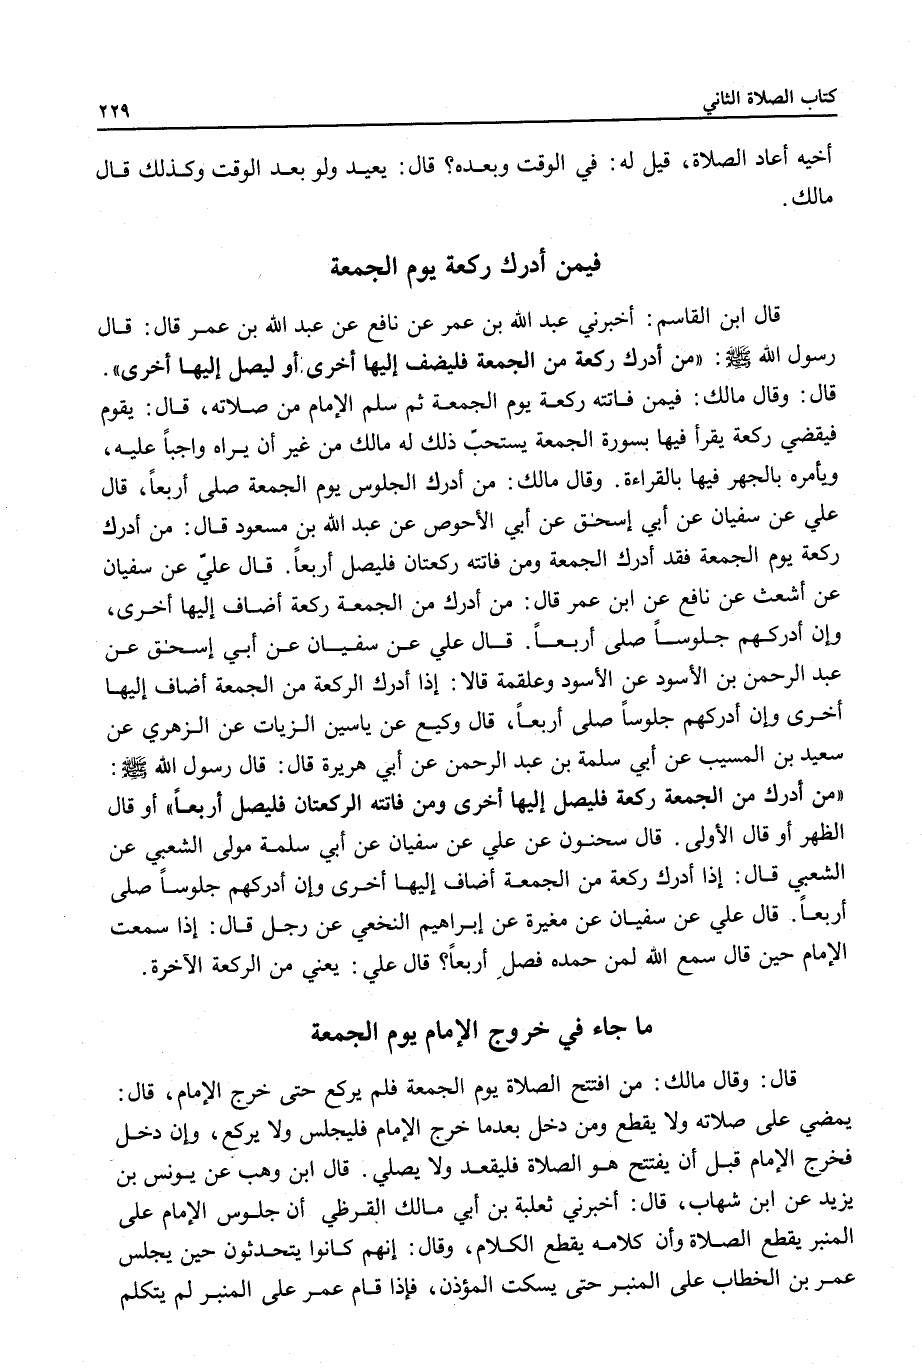 كتاب الصلاة الثاني ٢٢٩
أخيه أعاد الصلاة، قيل له: في الوقت وبعـده؟ قال: يعيـد ولو بعـد الوقت وكـذلك قـال
مالك.
فيمن أدرك ركعة يوم الجمعة
قال ابن القاسم: أخبرني عبد الله بن عمر عن نافع عن عبد الله بن عمـر قال: قـال
رسول الله ﷺ: «من أدرك ركعة من الجمعة فليضف إليها أخرى أو ليصل إليهـا أخرى».
قال: وقال مالك: فيمن فـاتته ركعـة يوم الجمعـة ثم سلم الإمام من صـلاته، قـال: يقوم
فيقضي ركعة يقرأ فيها بسورة الجمعة يستحبّ ذلك له مالك من غير أن يـراه واجباً عليـه،
ويأمره بالجهر فيها بالقراءة. وقال مالك: من أدرك الجلوس يوم الجمعة صلى أربعاً، قال
علي عن سفيان عن أبي إسحٰق عن أبي الأحوص عن عبد الله بن مسعود قـال: من أدرك
ركعة يوم الجمعة فقد أدرك الجمعة ومن فاتته ركعتان فليصل أربعاً. قـال عليّ عن سفيان
عن أشعث عن نافع عن ابن عمر قال: من أدرك من الجمعـة ركعة أضـاف إليها أخـرى،
وإن أدركـهم جـلوسـاً صلى أربـعـاً. قـال علي عـن سفـيـان عـن أبـي إسـحٰق عـن
عبد الرحمن بن الأسود عن الأسود وعلقمة قالا: إذا أدرك الركعة من الجمعة أضاف إليهـا
أخـرى وإن أدركهم جلوساً صلى أربعـاً، قال وكيـع عن ياسين الـزيات عن الـزهري عن
سعيد بن المسيب عن أبي سلمة بن عبد الرحمن عن أبي هريرة قال: قال رسول الله ﷺ:
«من أدرك من الجمعة ركعة فليصل إليها أخرى ومن فاتته الركعتان فليصل أربعـاً» أو قال
الظهر أو قال الأولى. قال سحنـون عن علي عن سفيان عن أبي سلمـة مولى الشعبي عن
الشعبي قـال: إذا أدرك ركعة من الجمعـة أضاف إليهـا أخـرى وإن أدركهم جلوسـاً صلى
أربعـاً. قال علي عن سفيـان عن مغيرة عن إبـراهيم النخعي عن رجـل قـال: إذا سمعت
الإمام حين قال سمع الله لمن حمده فصلِ أربعاً؟ قال علي: يعني من الركعة الآخرة.
ما جاء في خروج الإمام يوم الجمعة
قال: وقال مالك: من افتتح الصلاة يوم الجمعة فلم يركع حتى خرج الإمام، قال:
يمضي على صلاته ولا يقطع ومن دخل بعدما خرج الإمام فليجلس ولا يركع، وإن دخـل
فخرج الإمام قبـل أن يفتتح هـو الصلاة فليقعـد ولا يصلي. قال ابن وهب عن يـونس بن
يزيد عن ابن شهاب، قال: أخبرني ثعلبة بن أبي مـالك القـرظي أن جلـوس الإمام على
المنبر يقطع الصـلاة وأن كلامـه يقطع الكـلام، وقال: إنهم كـانوا يتحـدثون حين يجلس
عمـر بن الخطاب على المنبـر حتى يسكت المؤذن، فإذا قـام عمـر على المنبـر لم يتكلم